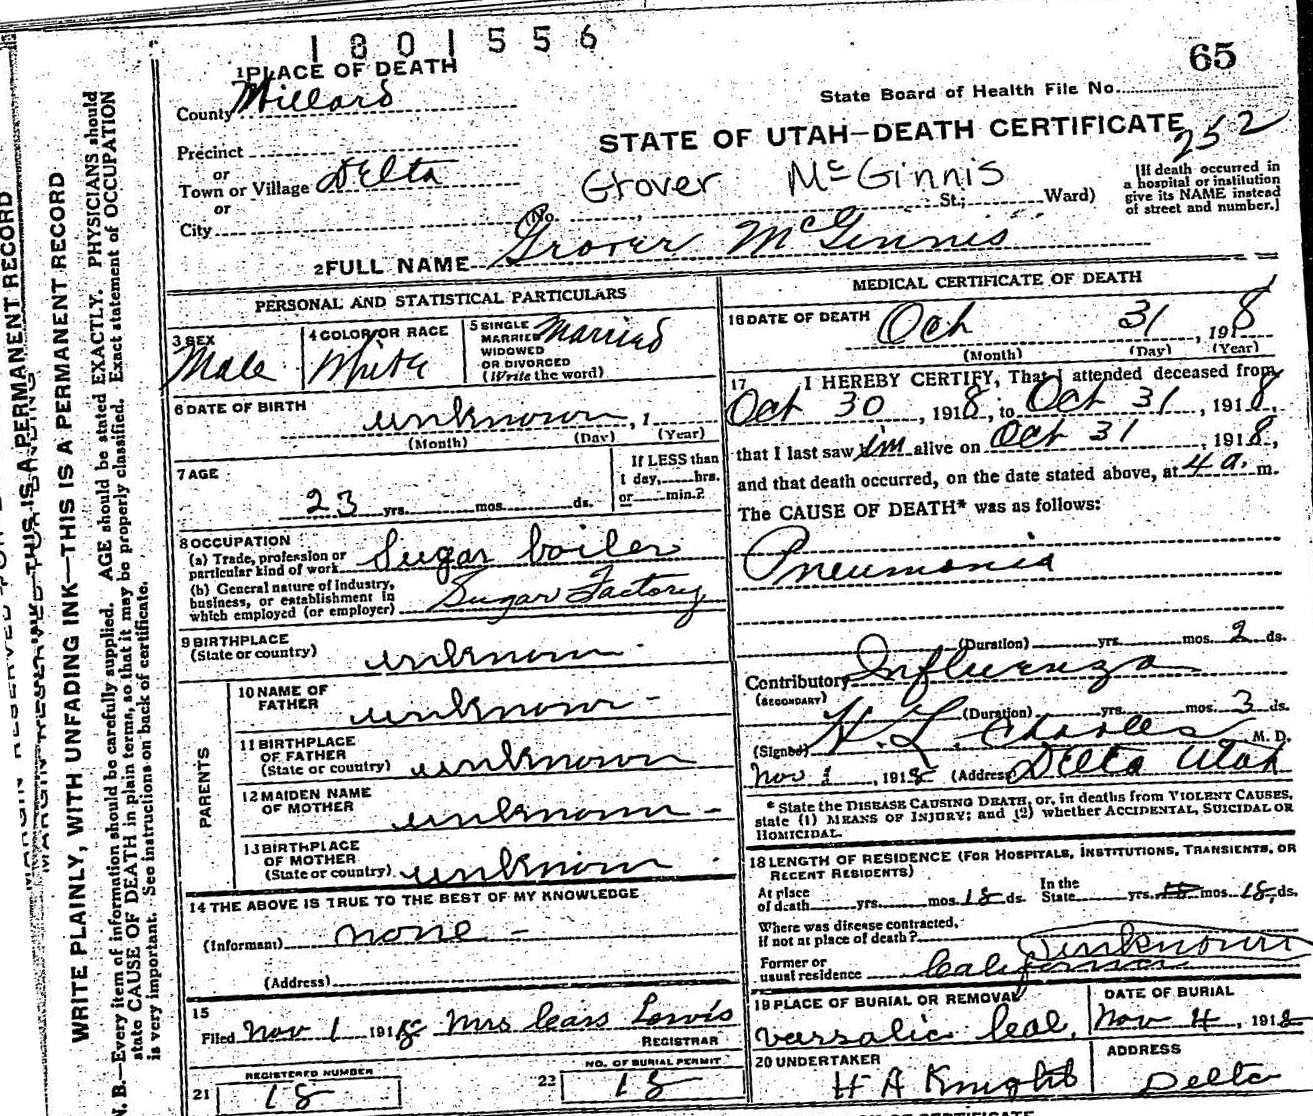 1801556
65
1 PLACE OF DEATH
County Millard
State Board of Health File No.
Precinct
STATE OF UTAH—DEATH CERTIFICATE
252
or
Town or Village Delta
Grover McGinnis
or
City
(No. St.; Ward)
[If death occurred in
a hospital or institution
give its NAME instead
of street and number.]
2 FULL NAME Grover McGinnis
PERSONAL AND STATISTICAL PARTICULARS
3 SEX
Male
4 COLOR OR RACE
White
5 SINGLE
MARRIED
WIDOWED
OR DIVORCED
(Write the word)
Married
6 DATE OF BIRTH
unknown, 1
(Month) (Day) (Year)
7 AGE
23 yrs. mos. ds.
If LESS than
1 day, hrs.
or min.?
8 OCCUPATION
(a) Trade, profession or
particular kind of work Sugar boiler
(b) General nature of industry,
business, or establishment in
which employed (or employer) Sugar Factory
9 BIRTHPLACE
(State or country) unknown
PARENTS
10 NAME OF
FATHER unknown -
11 BIRTHPLACE
OF FATHER
(State or country) unknown
12 MAIDEN NAME
OF MOTHER unknown -
13 BIRTHPLACE
OF MOTHER
(State or country) unknown
14 THE ABOVE IS TRUE TO THE BEST OF MY KNOWLEDGE
(Informant) none -
(Address)
15
Filed Nov 1 1918 Mrs Lewis
REGISTRAR
REGISTERED NUMBER
21 18
NO. OF BURIAL PERMIT
22 18
MEDICAL CERTIFICATE OF DEATH
16 DATE OF DEATH
Oct 31, 1918
(Month) (Day) (Year)
17 I HEREBY CERTIFY, That I attended deceased from
Oct 30, 1918, to Oct 31, 1918,
that I last saw him alive on Oct 31, 1918,
and that death occurred, on the date stated above, at 4 a. m.
The CAUSE OF DEATH* was as follows:
Pneumonia
(Duration) yrs. mos. 2 ds.
Contributory Influenza
(SECONDARY)
(Duration) yrs. mos. 3 ds.
(Signed) H. L. Charles M. D.
Nov 1, 1918 (Address) Delta Utah
* State the DISEASE CAUSING DEATH, or, in deaths from VIOLENT CAUSES,
state (1) MEANS OF INJURY; and (2) whether ACCIDENTAL, SUICIDAL OR
HOMICIDAL.
18 LENGTH OF RESIDENCE (FOR HOSPITALS, INSTITUTIONS, TRANSIENTS, OR
RECENT RESIDENTS)
At place
of death yrs. mos. 18 ds.
In the
State yrs. 18 mos. 18 ds.
Where was disease contracted,
if not at place of death? unknown
Former or
usual residence California
19 PLACE OF BURIAL OR REMOVAL
Cal.
DATE OF BURIAL
Nov 4, 1918
20 UNDERTAKER
H A Knight
ADDRESS
Delta
WRITE PLAINLY, WITH UNFADING INK—THIS IS A PERMANENT RECORD
N. B.—Every item of information should be carefully supplied. AGE should be stated EXACTLY. PHYSICIANS should
state CAUSE OF DEATH in plain terms, so that it may be properly classified. Exact statement of OCCUPATION
is very important. See instructions on back of certificate.
THIS IS A PERMANENT RECORD